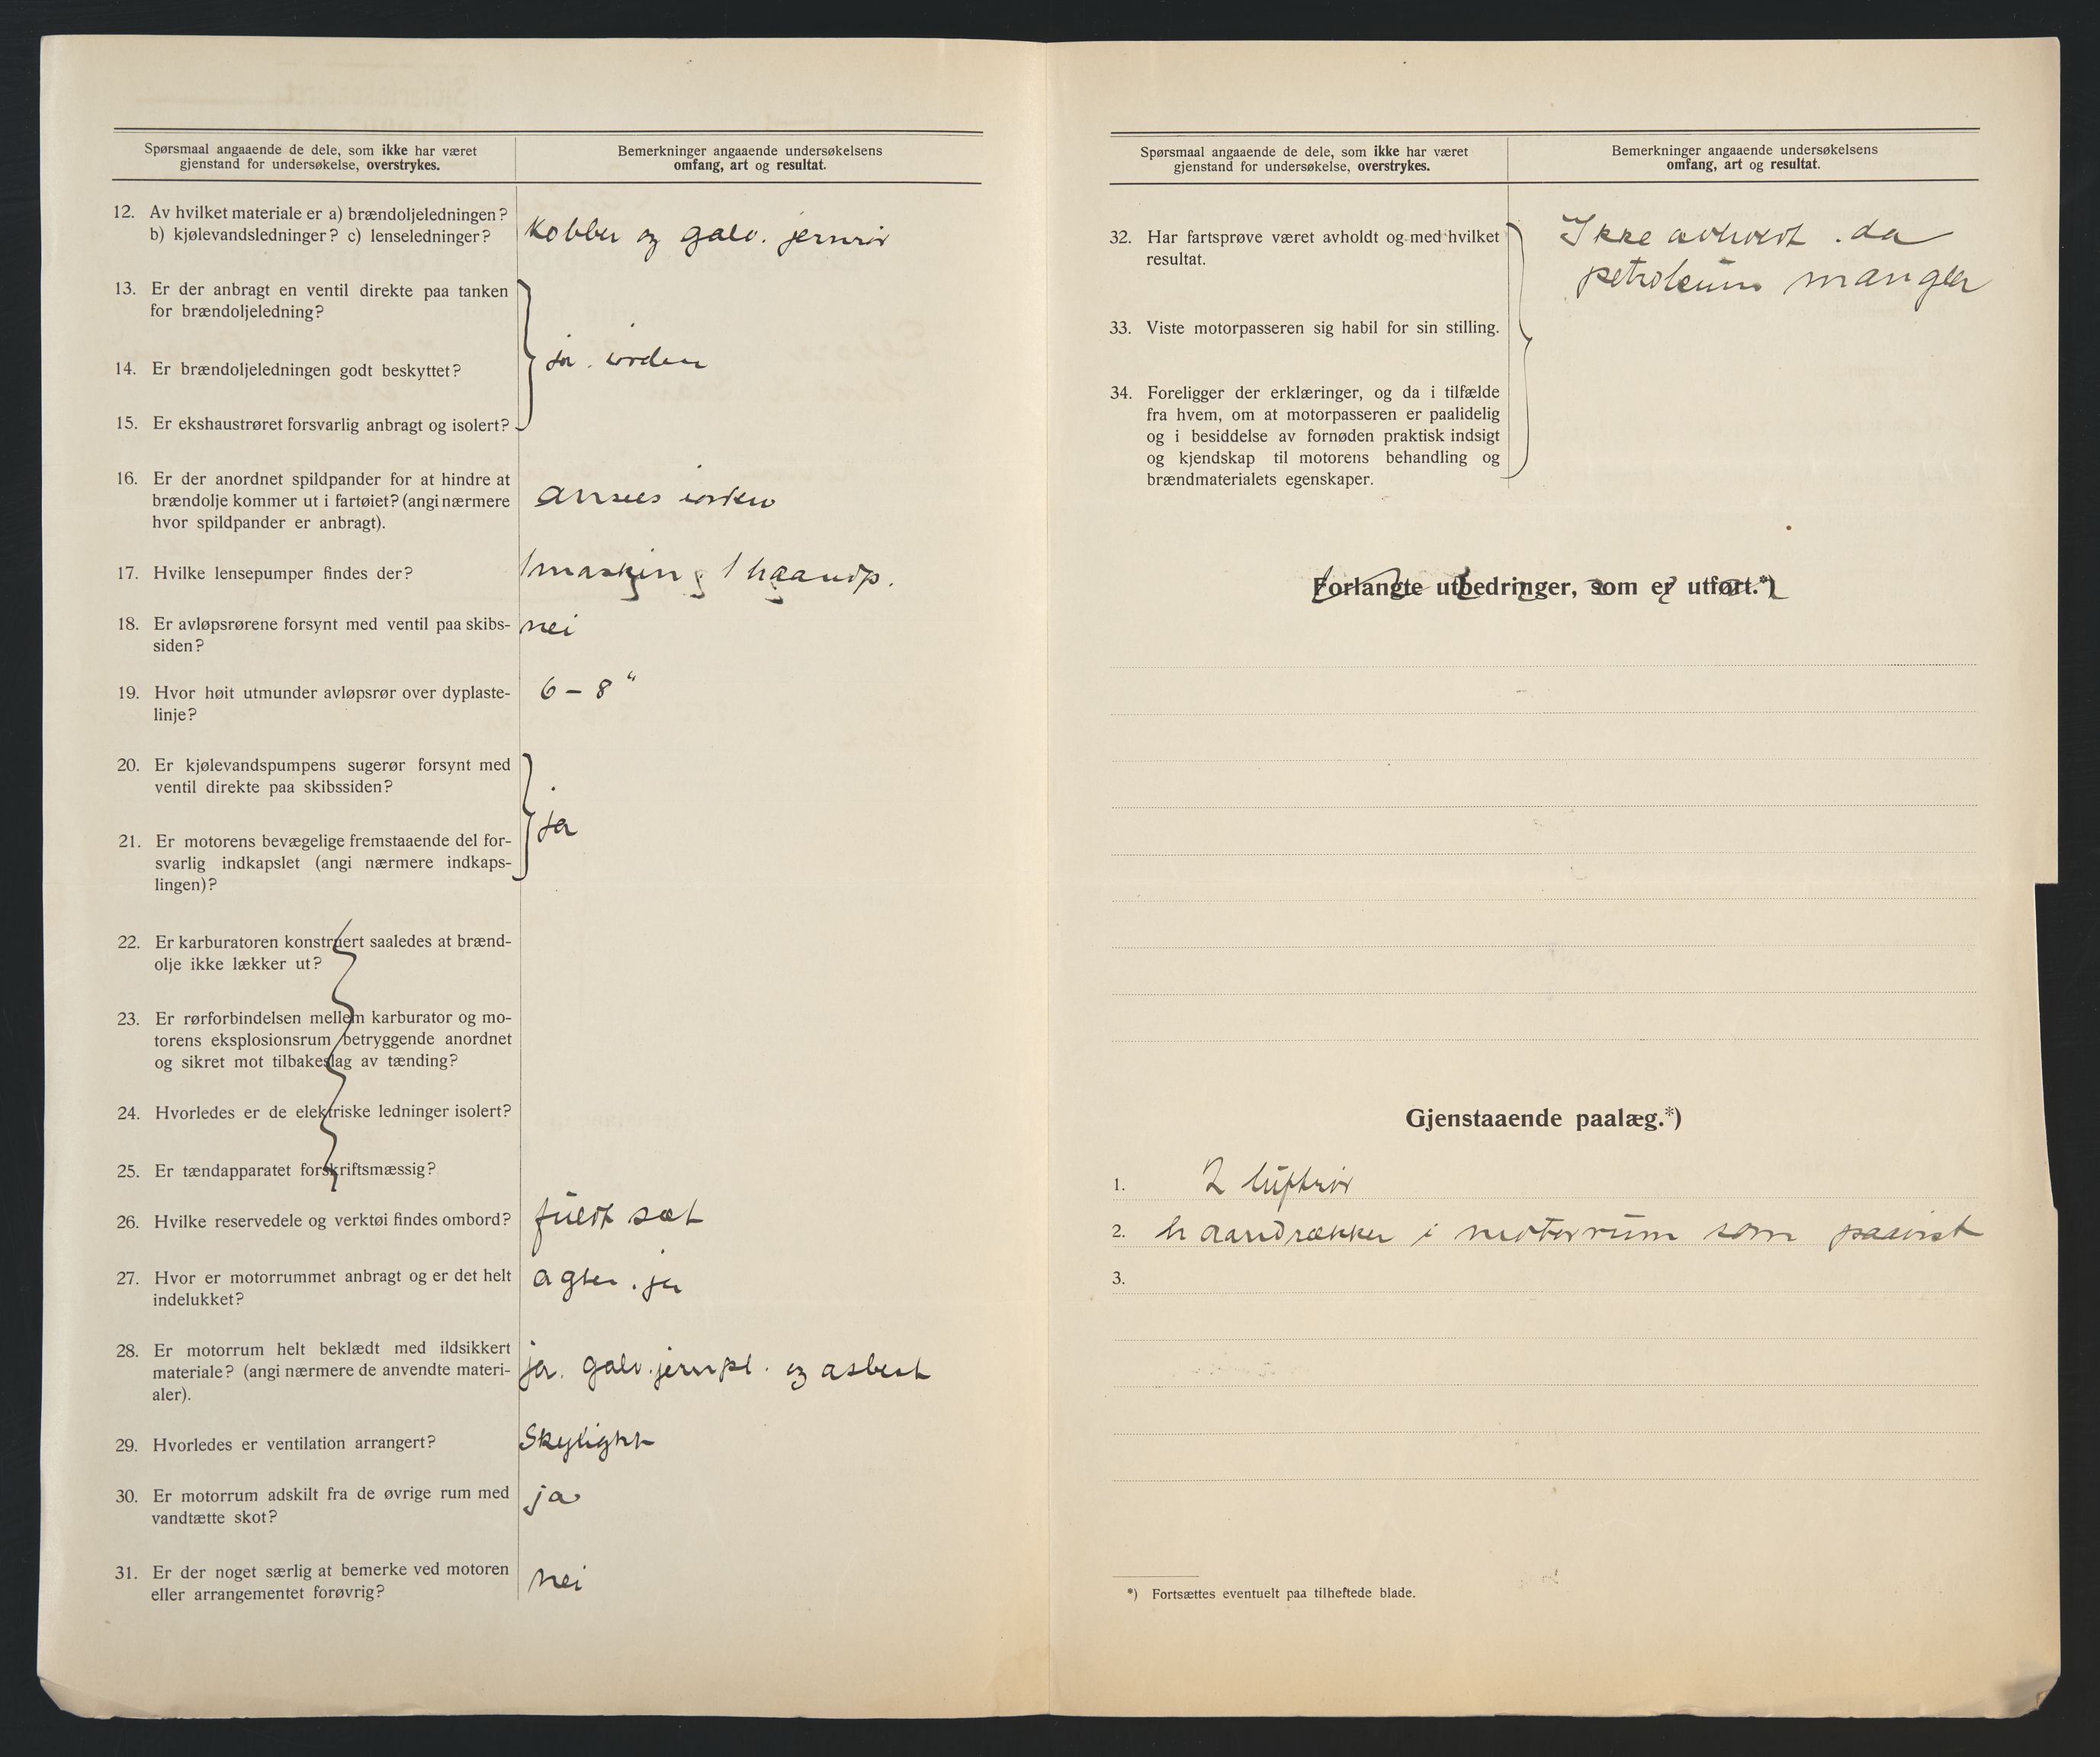 Spørsmaal angaaende de dele, som ikke har været
gjenstand for undersøkelse, overstrykes.
Bemerkninger angaaende undersøkelsens
omfang, art og resultat.
12. Av hvilket materiale er a) brændoljeledningen?
b) kjølevandsledninger? c) lenseledninger?
Kobber og galv. jernrør
13. Er der anbragt en ventil direkte paa tanken
for brændoljeledning?
14. Er brændoljeledningen godt beskyttet?
ja. iorden
15. Er ekshaustrøret forsvarlig anbragt og isolert?
16. Er der anordnet spildpander for at hindre at
brændolje kommer ut i fartøiet? (angi nærmere
hvor spildpander er anbragt).
ansees iorden
17. Hvilke lensepumper findes der?
1 maskin, 1 haandp.
18. Er avløpsrørene forsynt med ventil paa skibs-
siden?
nei
19. Hvor høit utmunder avløpsrør over dyplaste-
linje?
6 – 8"
20. Er kjølevandspumpens sugerør forsynt med
ventil direkte paa skibssiden?
ja
21. Er motorens bevægelige fremstaaende del for-
svarlig indkapslet (angi nærmere indkaps-
lingen)?
22. Er karburatoren konstruert saaledes at brænd-
olje ikke lækker ut?
23. Er rørforbindelsen mellem karburator og mo-
torens eksplosionsrum betryggende anordnet
og sikret mot tilbakeslag av tænding?
24. Hvorledes er de elektriske ledninger isolert?
25. Er tændapparatet forskriftsmæssig?
26. Hvilke reservedele og verktøi findes ombord?
fuldt sæt
27. Hvor er motorrummet anbragt og er det helt
indelukket?
agter. ja
28. Er motorrum helt beklædt med ildsikkert
materiale? (angi nærmere de anvendte materi-
aler).
ja. galv. jernpl. og asbest
29. Hvorledes er ventilation arrangert?
Skylight
30. Er motorrum adskilt fra de øvrige rum med
vandtætte skot?
ja
31. Er der noget særlig at bemerke ved motoren
eller arrangementet forøvrig?
nei
Spørsmaal angaaende de dele, som ikke har været
gjenstand for undersøkelse, overstrykes.
Bemerkninger angaaende undersøkelsens
omfang, art og resultat.
32. Har fartsprøve været avholdt og med hvilket
resultat.
Ikke avholdt. da
petroleum mangler
33. Viste motorpasseren sig habil for sin stilling.
34. Foreligger der erklæringer, og da i tilfælde
fra hvem, om at motorpasseren er paalidelig
og i besiddelse av fornøden praktisk indsigt
og kjendskap til motorens behandling og
brændmaterialets egenskaper.
Forlangte utbedringer, som er utført.*)
Gjenstaaende paalæg.*)
1. 2 luftrør
2. haandrækker i motorrum som paavist
3.
*) Fortsættes eventuelt paa tilheftede blade.